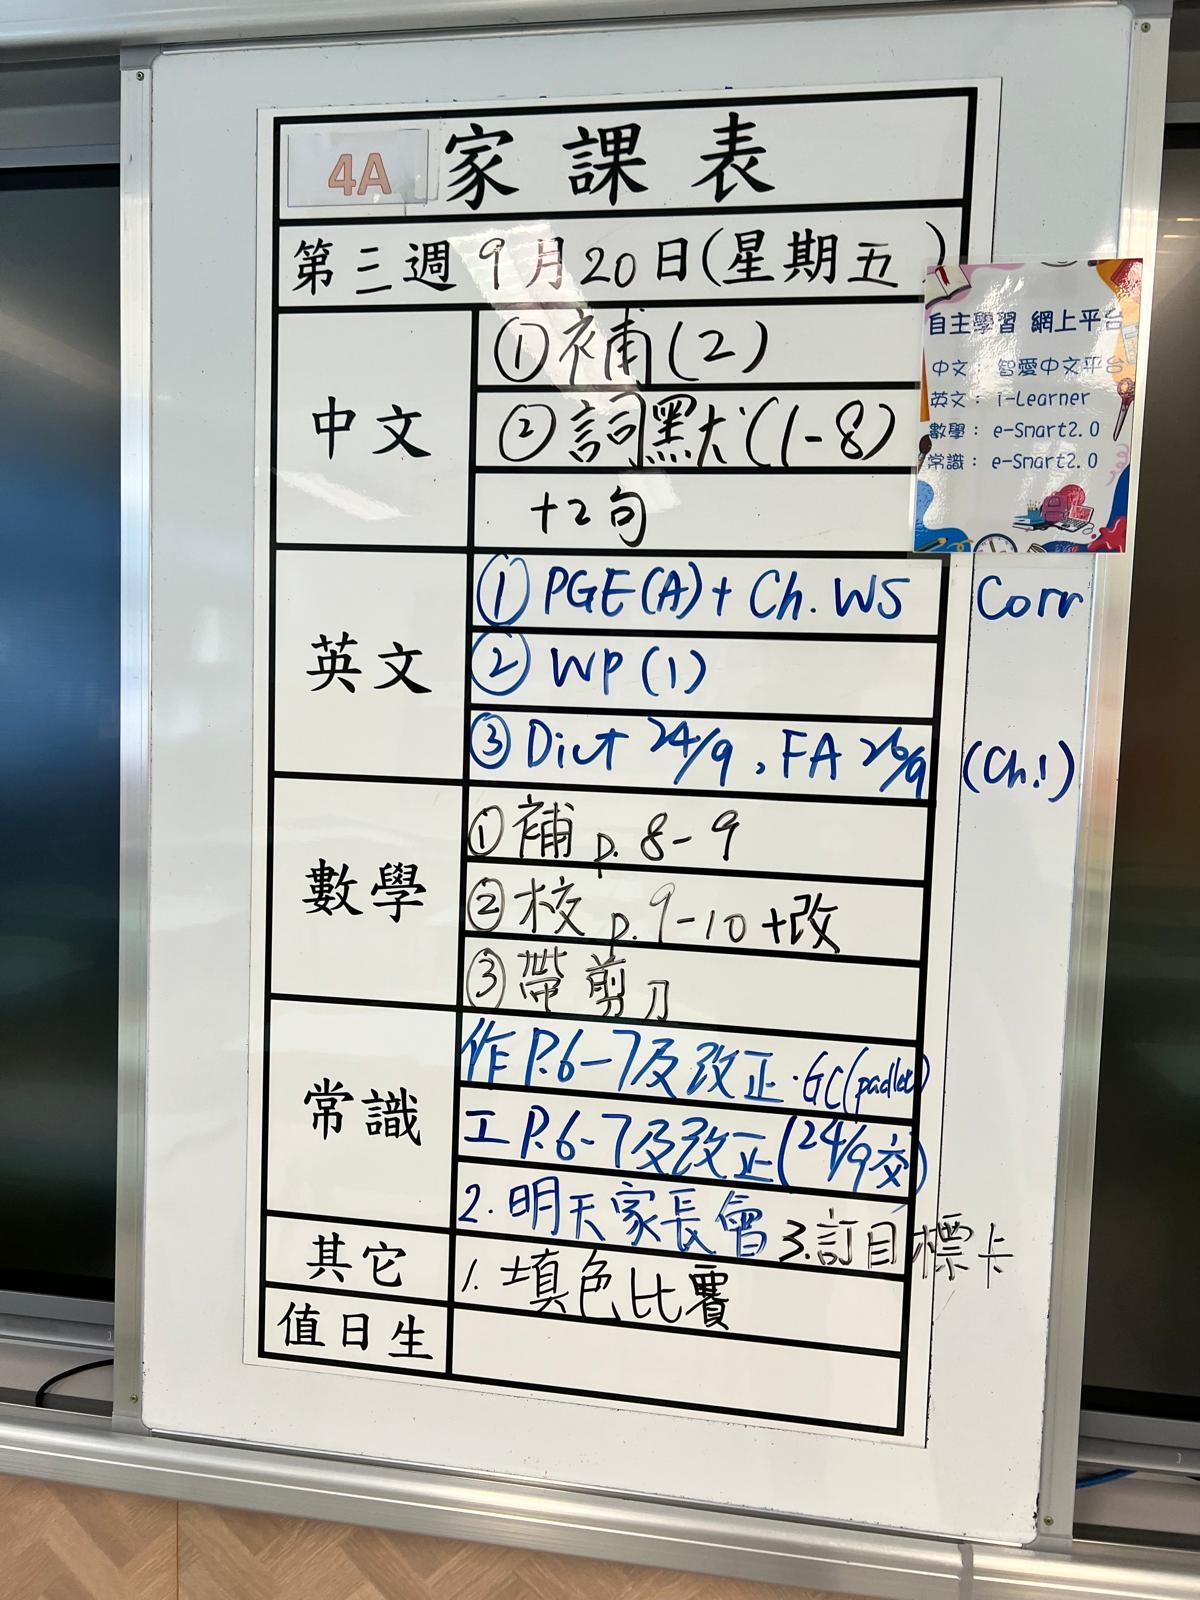 4A 家課表
第三週9月20日(星期五)
自主學習 網上平台
中文： 智愛中文平台
英文： i-Learner
數學： e-Smart2.0
常識： e-Smart2.0
中文
①補(2)
②詞默(1-8)
+2句
英文
①PGE(A)+ Ch. WS Corr
②WP(1)
③Dict 24/9, FA 26/9 (Ch.1)
數學
①補 p. 8-9
②校 p. 9-10+改
③帶剪刀
常識
作 P.6-7及改正·GC(padlet)
工 P.6-7及改正(24/9交)
2. 明天家長會 3.訂目標卡
其它
1. 填色比賽
值日生